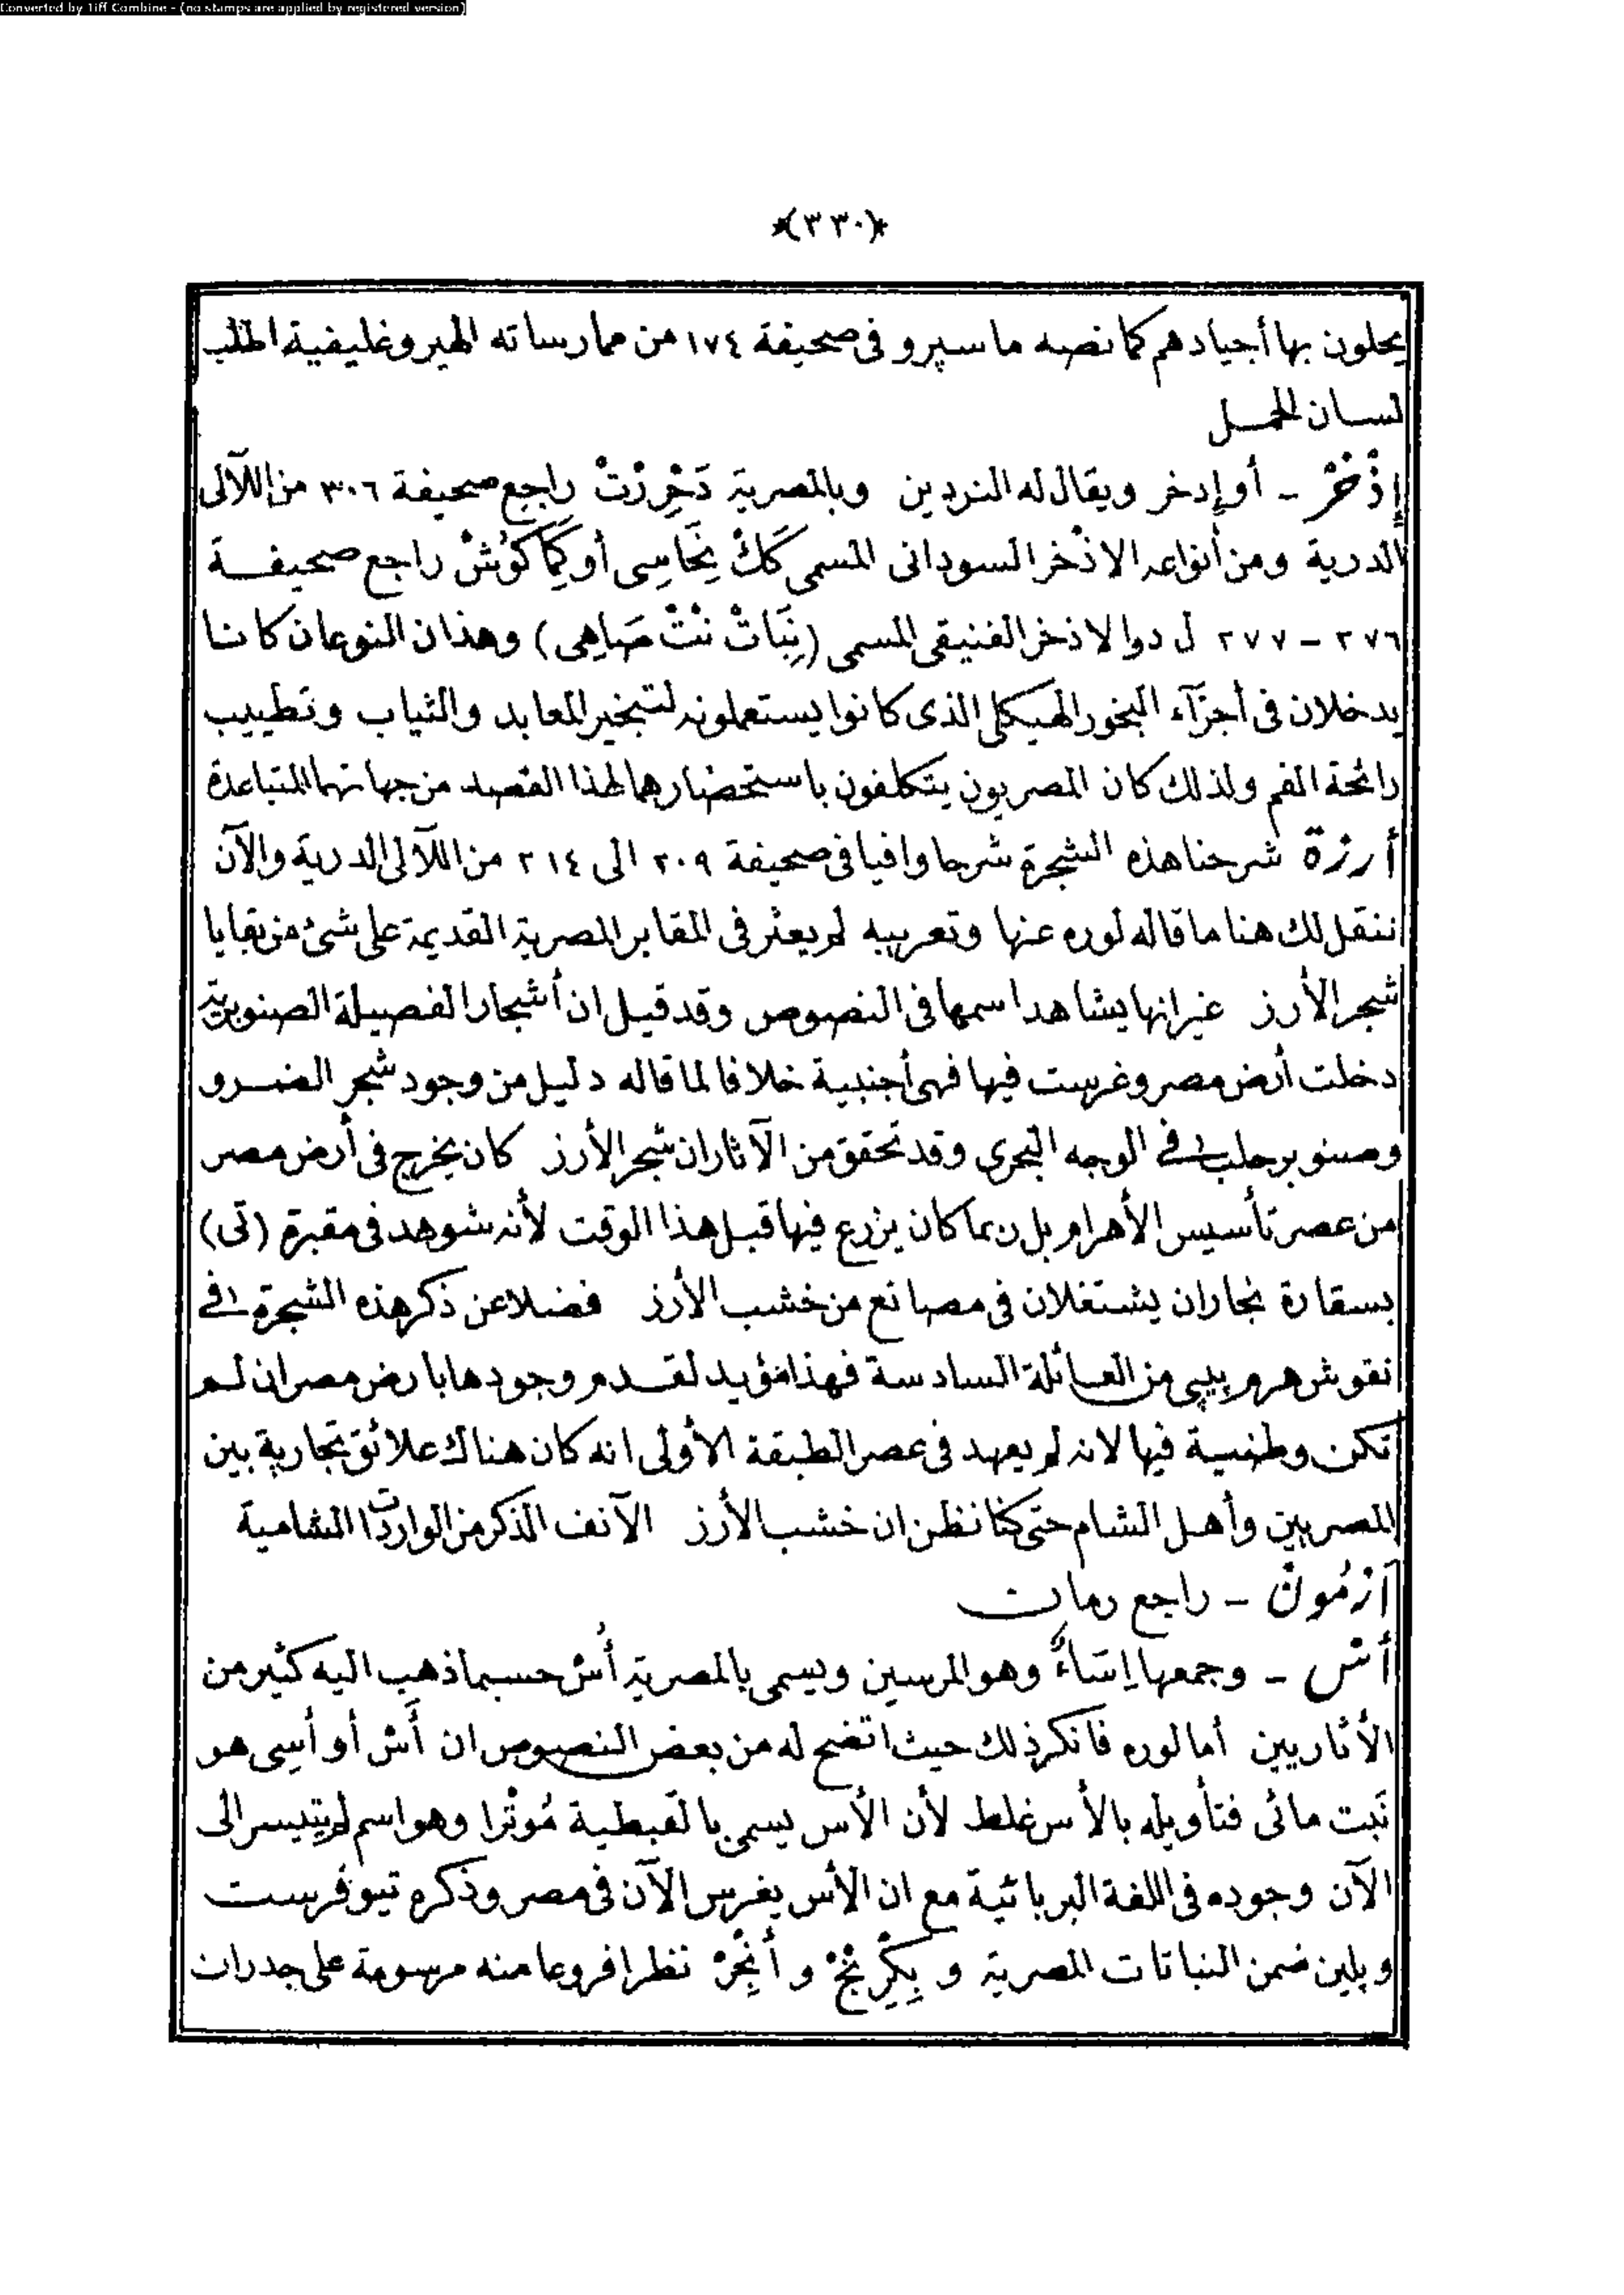 Converted by Tiff Combine - (no stamps are applied by registered version)
*(٣٣٠)*
يحلون بها أجيادهم كما نصه ماسپرو فى صحيفة ١٧٤ من ممارساته الهيروغليفية اطلب
لسان الحمل
إِذْخَرْ - أو إدخر ويقال له النردين وبالمصرية دَخِرْتْ راجع صحيفة ٣٠٦ من اللآلى
الدرية ومن أنواعه الاذخر السودانى المسمى كَكْ نِحَاسِى أو كِمَا كَوُشْ راجع صحيفة
٢٧٦ - ٢٧٧ ل دوالاذخر الفنيقى المسمى (نِبَاتْ نْتْ صَاهِى) وهذان النوعان كانا
يدخلان فى أجزآء البخور الهيكلى الذى كانوا يستعملونه لتبخير المعابد والثياب وتطييب
رائحة الفم ولذلك كان المصريون يتكلفون باستحضارهما لهذا القصد من جهاتهما المتباعدة
أرزة شرحنا هذه الشجرة شرحا وافيا فى صحيفة ٢٠٩ الى ٢١٤ من اللآلى الدرية والآن
ننقل لك هنا ما قاله لوره عنها وتعريبه لم يعثر فى المقابر المصرية القديمة على شئ من بقايا
شجر الأرز غير انها يشاهد اسمها فى النصوص وقد قيل ان أشجار الفصيلة الصنوبرية
دخلت أرض مصر وغرست فيها فهى أجنبية خلافا لما قاله دليل من وجود شجر الضرو
وصنوبر حلب فى الوجه البحرى وقد تحقق من الآثار ان شجر الأرز كان يخرج فى أرض مصر
من عصر تأسيس الأهرام بل ربما كان يزرع فيها قبل هذا الوقت لأنه شوهد فى مقبرة (تى)
بسقارة نجاران يشتغلان فى مصانع من خشب الأرز فضلا عن ذكر هذه الشجرة فى
نقوش هرم بيپى من العائلة السادسة فهذا مؤيد لقدم وجودها بارض مصر ان لم
تكن وطنية فيها لانه لم يعهد فى عصر الطبقة الأولى انه كان هناك علائق تجارية بين
المصريين وأهل الشام حتى كنا نظن ان خشب الأرز الآنف الذكر من الواردات الشامية
أَرْمُونْ - راجع رمان
أَسْ - وجمعها إسَاءٌ وهو المرسين ويسمى بالمصرية أُسْ حسبما ذهب اليه كثير من
الأثاريين أما لوره فانكر ذلك حيث اتضح له من بعض النصوص ان أَسْ أو أَسِى هو
نَبت مائى فتأويله بالأس غلط لأن الأس يسمى بالقبطية مُوتْرا وهو اسم لم يتيسر الى
الآن وجوده فى اللغة البربائية مع ان الأس يغرس الآن فى مصر وذكره تيوفرست
وپلين ضمن النباتات المصرية و پِكِرِنْجْ و أُنْجِرْ نظرا فروعا منه مرسومة على جدران